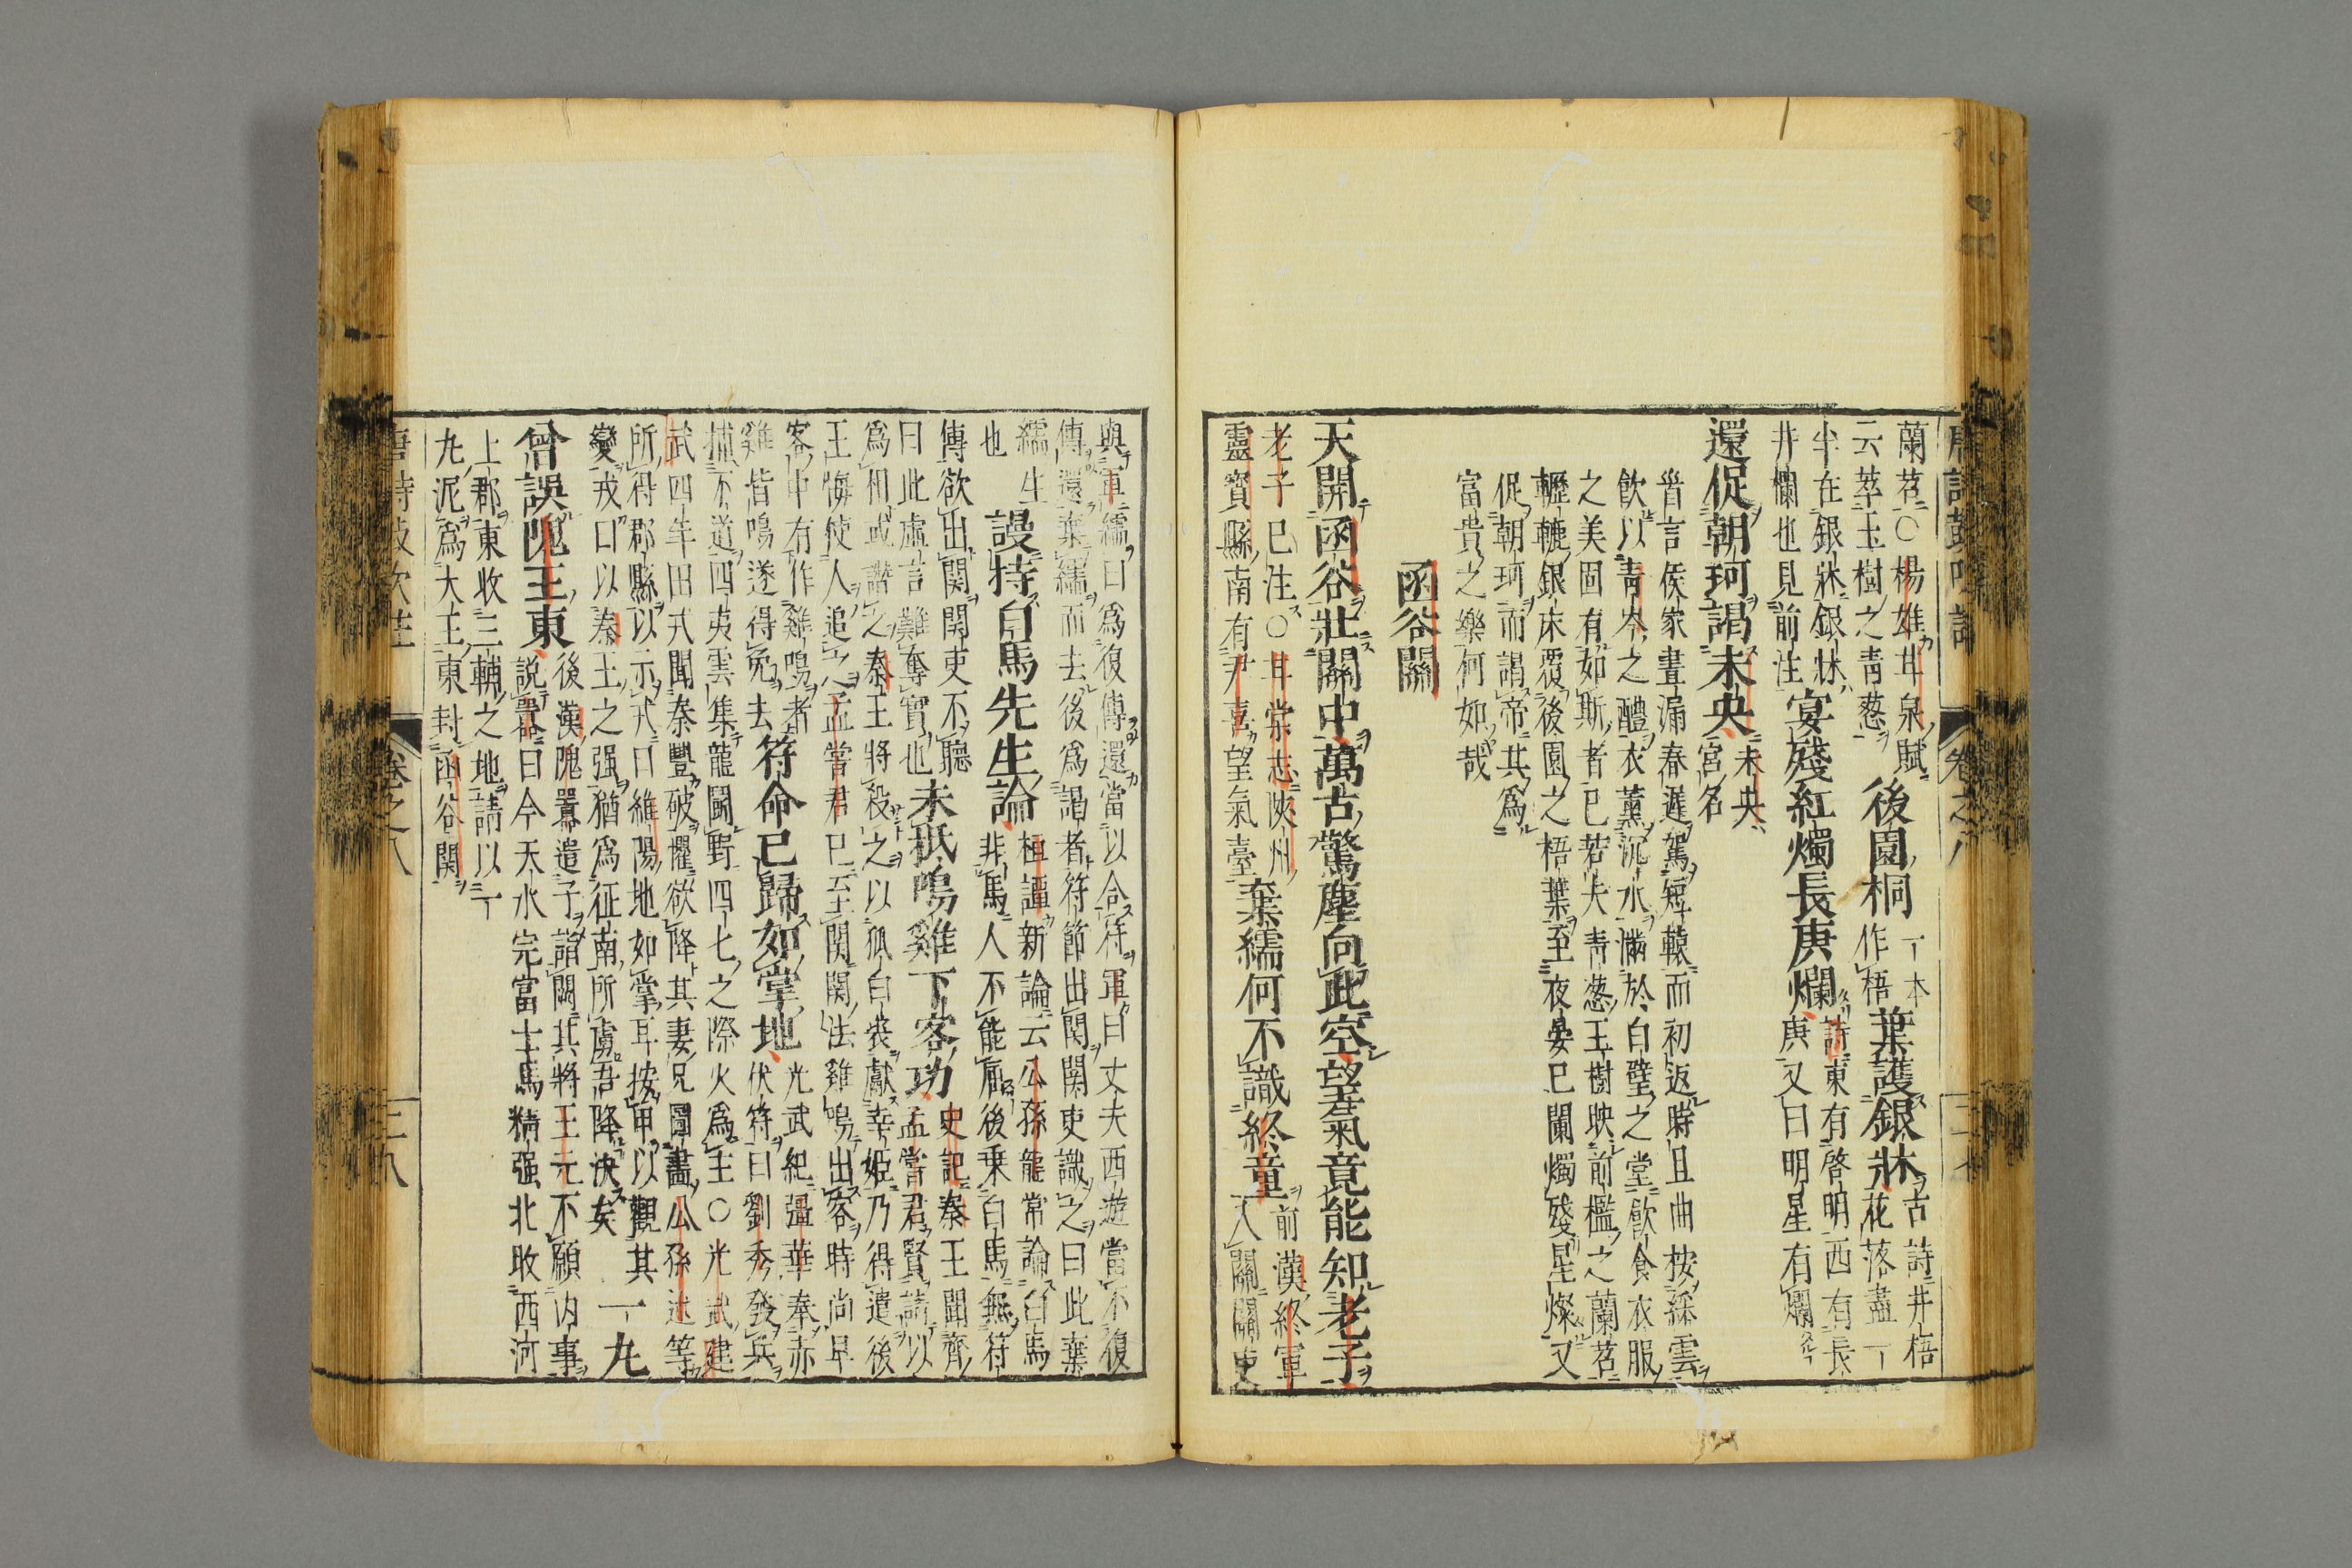 蘭苕○楊雄甘泉賦
云萃玉樹之青葱
後園桐
一本
作梧
葉護銀牀
古詩井梧
花落盡一
半在銀牀銀牀
井欄也見前注
宴殘紅燭長庚爛
詩東有啓明西有長
庚又曰明星有爛
還促朝珂謁未央
未央
宮名
皆言侯家晝漏春遲駕短轅而初返時且曲按綵雲
飲以青岑之醴衣薫沉水滿於白璧之堂飲食衣服
之美固有如斯者已若夫青葱玉樹映前檻之蘭苕
轣轆銀床覆後園之梧葉至夜晏已闌燭殘星燦又
促朝珂而謁帝其為
富貴之樂何如哉
函谷關
天開函谷壯關中萬古驚塵向此空望氣竟能知老子
老子已注○耳棠志陝州
靈寳縣南有尹喜望氣臺
棄繻何不識終童
前漢終軍
入關關吏
與軍繻曰為復傳還當以合符軍曰丈夫西遊當不復
傳還棄繻而去後為謁者符節出関関吏識之曰此棄
繻生
也
謾持白馬先生論
桓譚新論云公孫龍常論白馬
非馬人不能屈後乗白馬無符
傳欲出関関吏不聽
曰此虛言難奪實也
未秖鳴雞下客功
史記秦王聞齊
孟嘗君賢請以
為相或譖之秦王將殺之以狐白裘獻幸姬乃得遣後
王悔使人追之孟嘗君已至関関法雞鳴出客時尚早
客中有作雞鳴者
雞皆鳴遂得免去
符命已歸如掌地
光武紀彊華奉赤
伏符曰劉秀發兵
捕不道四夷雲集龍鬭野四七之際火為主○光武建
武四年田戎聞秦豐破懼欲降其妻兄圖畫公孫述等
所得郡縣以示戎曰維陽地如掌耳按甲以觀其一九
變戎曰以秦王之强猶為征南所虜吾降決矣
曾誤隗王東
後漢隗囂遣子詣闕其將王元不願内事
說囂曰今天水完富士馬精强北收西河
上郡東收三輔之地請以一
九泥為大王東封函谷関
卷之八